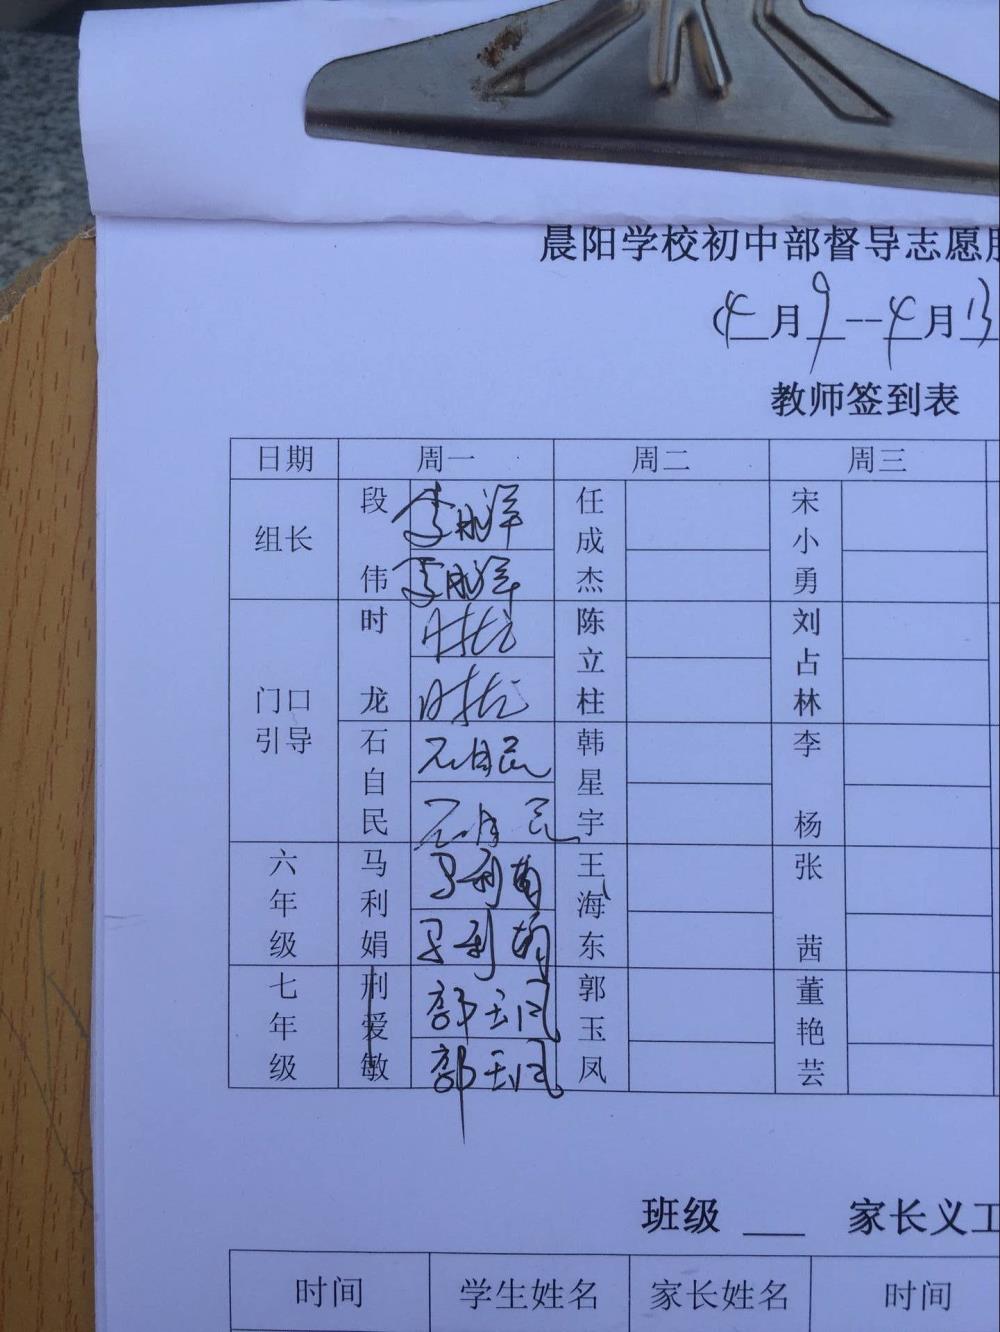 晨阳学校初中部督导志愿
(4月9--4月13
教师签到表
日期 周一 周二 周三
组长 段伟 任成杰 宋小勇
门口引导 时龙 时龙 时龙 陈立柱 刘占林
石自民 石自民 石自民 韩星宇 李杨
六年级 马利娟 马利娟 马利娟 王海东 张茜
七年级 刑爱敏 郭玉凤 郭玉凤 郭玉凤 董艳芸
班级 ___ 家长义工
时间 学生姓名 家长姓名 时间